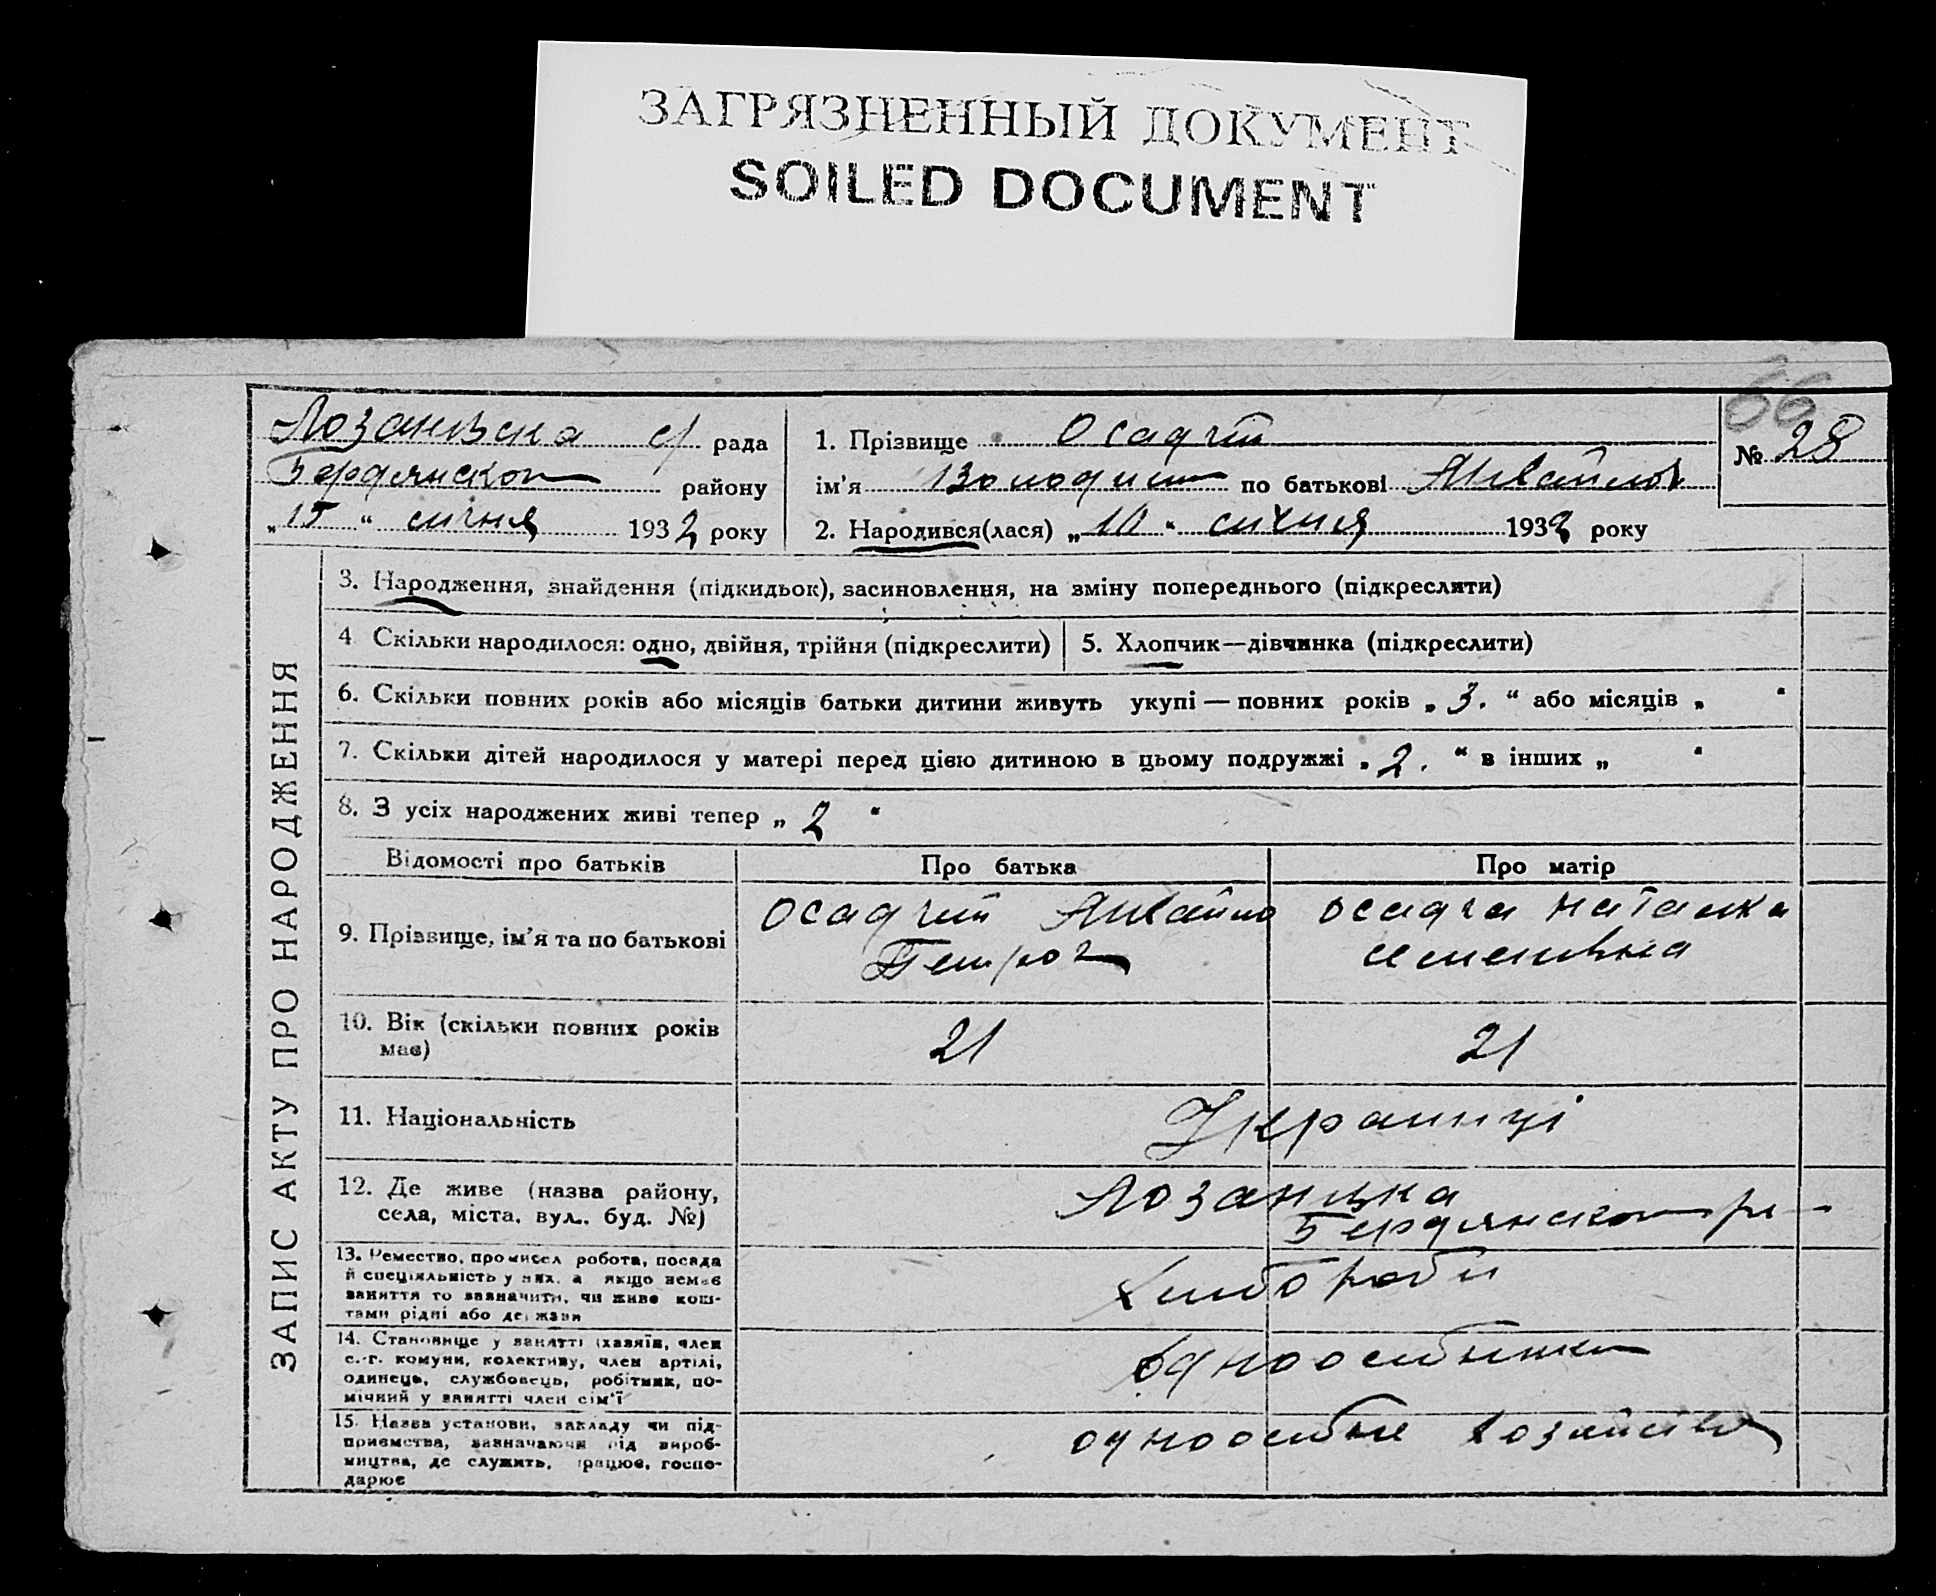 ЗАГРЯЗНЕННЫЙ ДОКУМЕНТ
SOILED DOCUMENT
66
Лозанівська с/ рада
Бердянского району
„15“ січня 1932 року
1. Прізвище Осадчий
ім'я Володимир по батькові Михайлов
2. Народився(лася) „10“ січня 1932 року
№ 28
ЗАПИС АКТУ ПРО НАРОДЖЕННЯ
3. Народження, знайдення (підкидьок), засиновлення, на зміну попереднього (підкреслити)
4 Скільки народилося: одно, двійня, трійня (підкреслити)
5. Хлопчик—дівчинка (підкреслити)
6. Скільки повних років або місяців батьки дитини живуть укупі — повних років „3.“ або місяців „ “
7. Скільки дітей народилося у матері перед цією дитиною в цьому подружжі „2.“ в інших „ “
8. З усіх народжених живі тепер „2“
Відомості про батьків Про батька Про матір
9. Прізвище, ім'я та по батькові
Осадчий Михайло
Петров
Осадча Наталка
Семеновна
10. Вік (скільки повних років
має)
21
21
11. Національність
Українці
12. Де живе (назва району,
села, міста, вул., буд. №)
Лозанівка
Бердянского р
13. Ремество, промисел робота, посада
й спеціяльність у них, а якщо немає
заняття то зазначити, чи живе кош-
тами рідні або держави
Хлібороби
14. Становище у занятті (хазяїн, член
с.-г. комуни, колективу, член артілі,
одинець, службовець, робітник, по-
мічний у занятті член сім'ї
15. Назва установи, закладу чи під-
приємства, зазначаючи рід вироб-
ництва, де служить, працює, госпо-
дарює